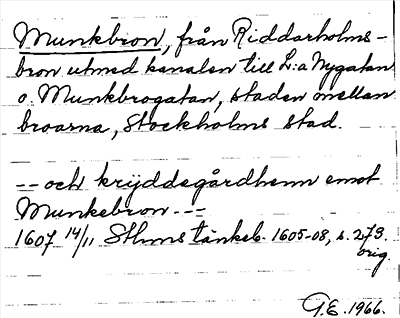 Munkbron, från Riddarholms-
bron utmed kanalen till L:a Nygatan
o. Munkbrogatan, staden mellan
broarna, Stockholms stad.
-- och kryddegårdhenn emot
Munkebron ---
1607 14/11 Sthms tänkeb. 1605-08, s. 273.
orig.
G.E. 1966.